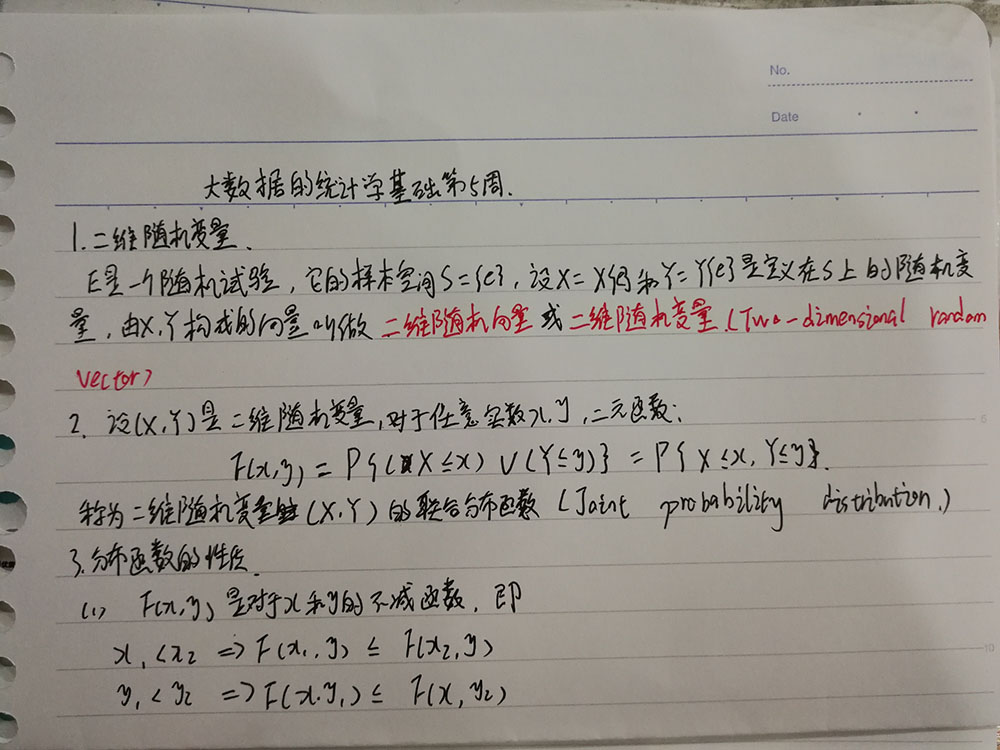 No.
Date
大数据的统计学基础第5周.
1.二维随机变量.
E是一个随机试验,它的样本空间S={e},设X=X{e}和Y=Y{e}是定义在S上的随机变
量,由X,Y构成的向量叫做二维随机向量或二维随机变量.(Two-dimensional random
vector)
2. 设(X,Y)是二维随机变量,对于任意实数x,y,二元函数:
F(x,y) = P{(X≤x) ∪ (Y≤y)} = P{X≤x, Y≤y}.
称为二维随机变量(X,Y)的联合分布函数(Joint probability distribution.)
3.分布函数的性质.
(1) F(x,y)是对于x和y的不减函数,即
x₁<x₂ => F(x₁,y) ≤ F(x₂,y)
y₁<y₂ => F(x.y₁) ≤ F(x,y₂)
6
10